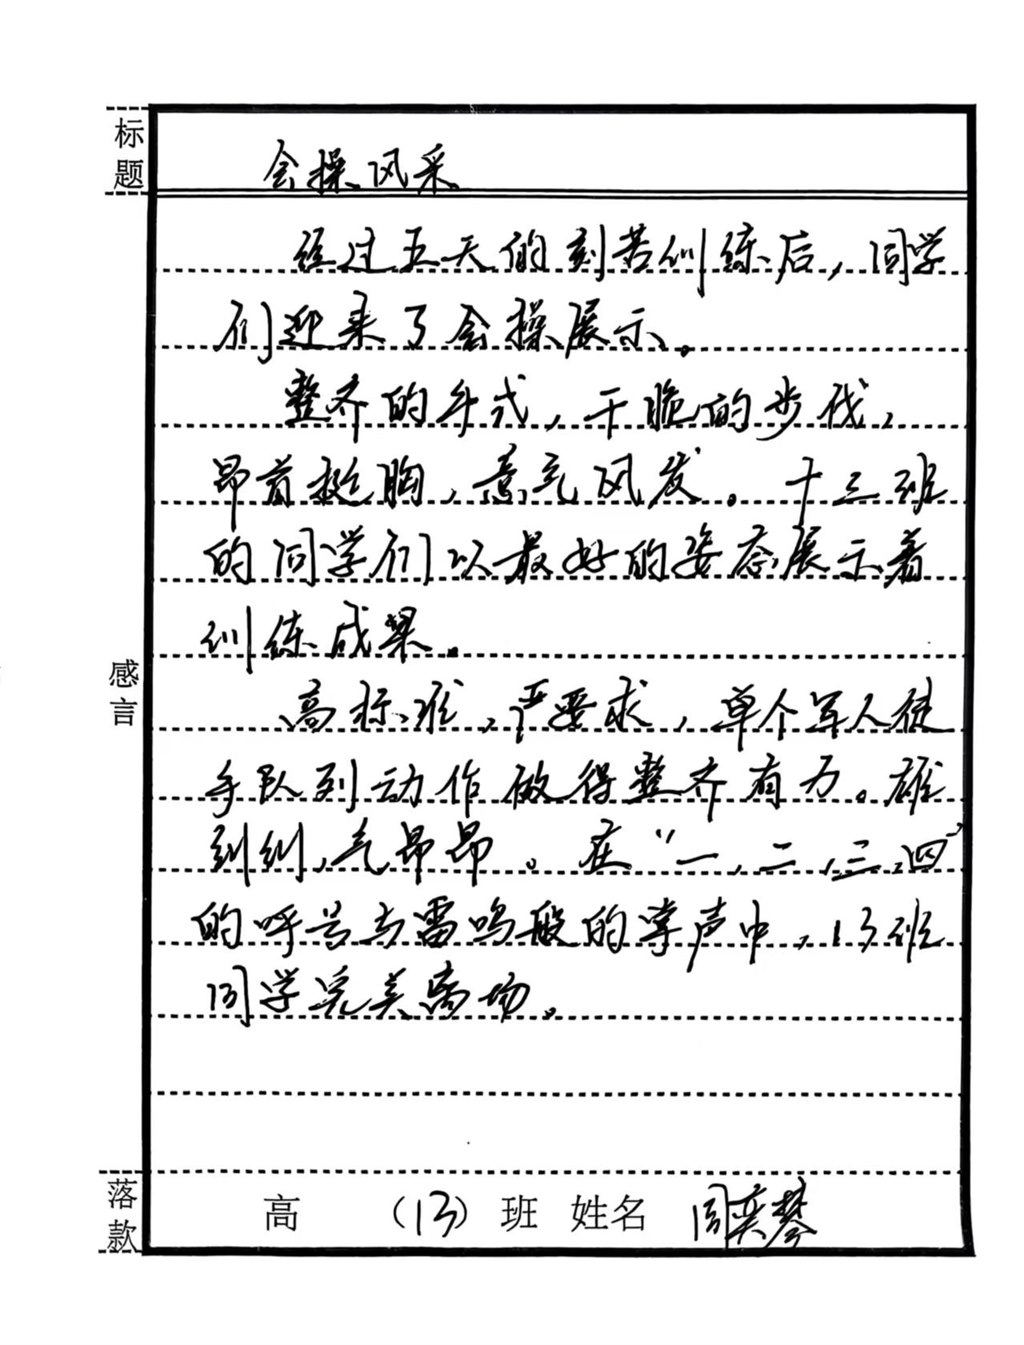 标题
会操风采
经过五天的刻苦训练后，同学
们迎来了会操展示。
整齐的军式，干脆的步伐，
昂首挺胸，意气风发。十三班
的同学们以最好的姿态展示着
训练成果。
感言
高标准，严要求，单个军人徒
手队列动作做得整齐有力。雄
纠纠，气昂昂。在“一，二，三，四”
的呼号与雷鸣般的掌声中，13班
同学完美离场。
落款
高 （13）班 姓名 周奕攀